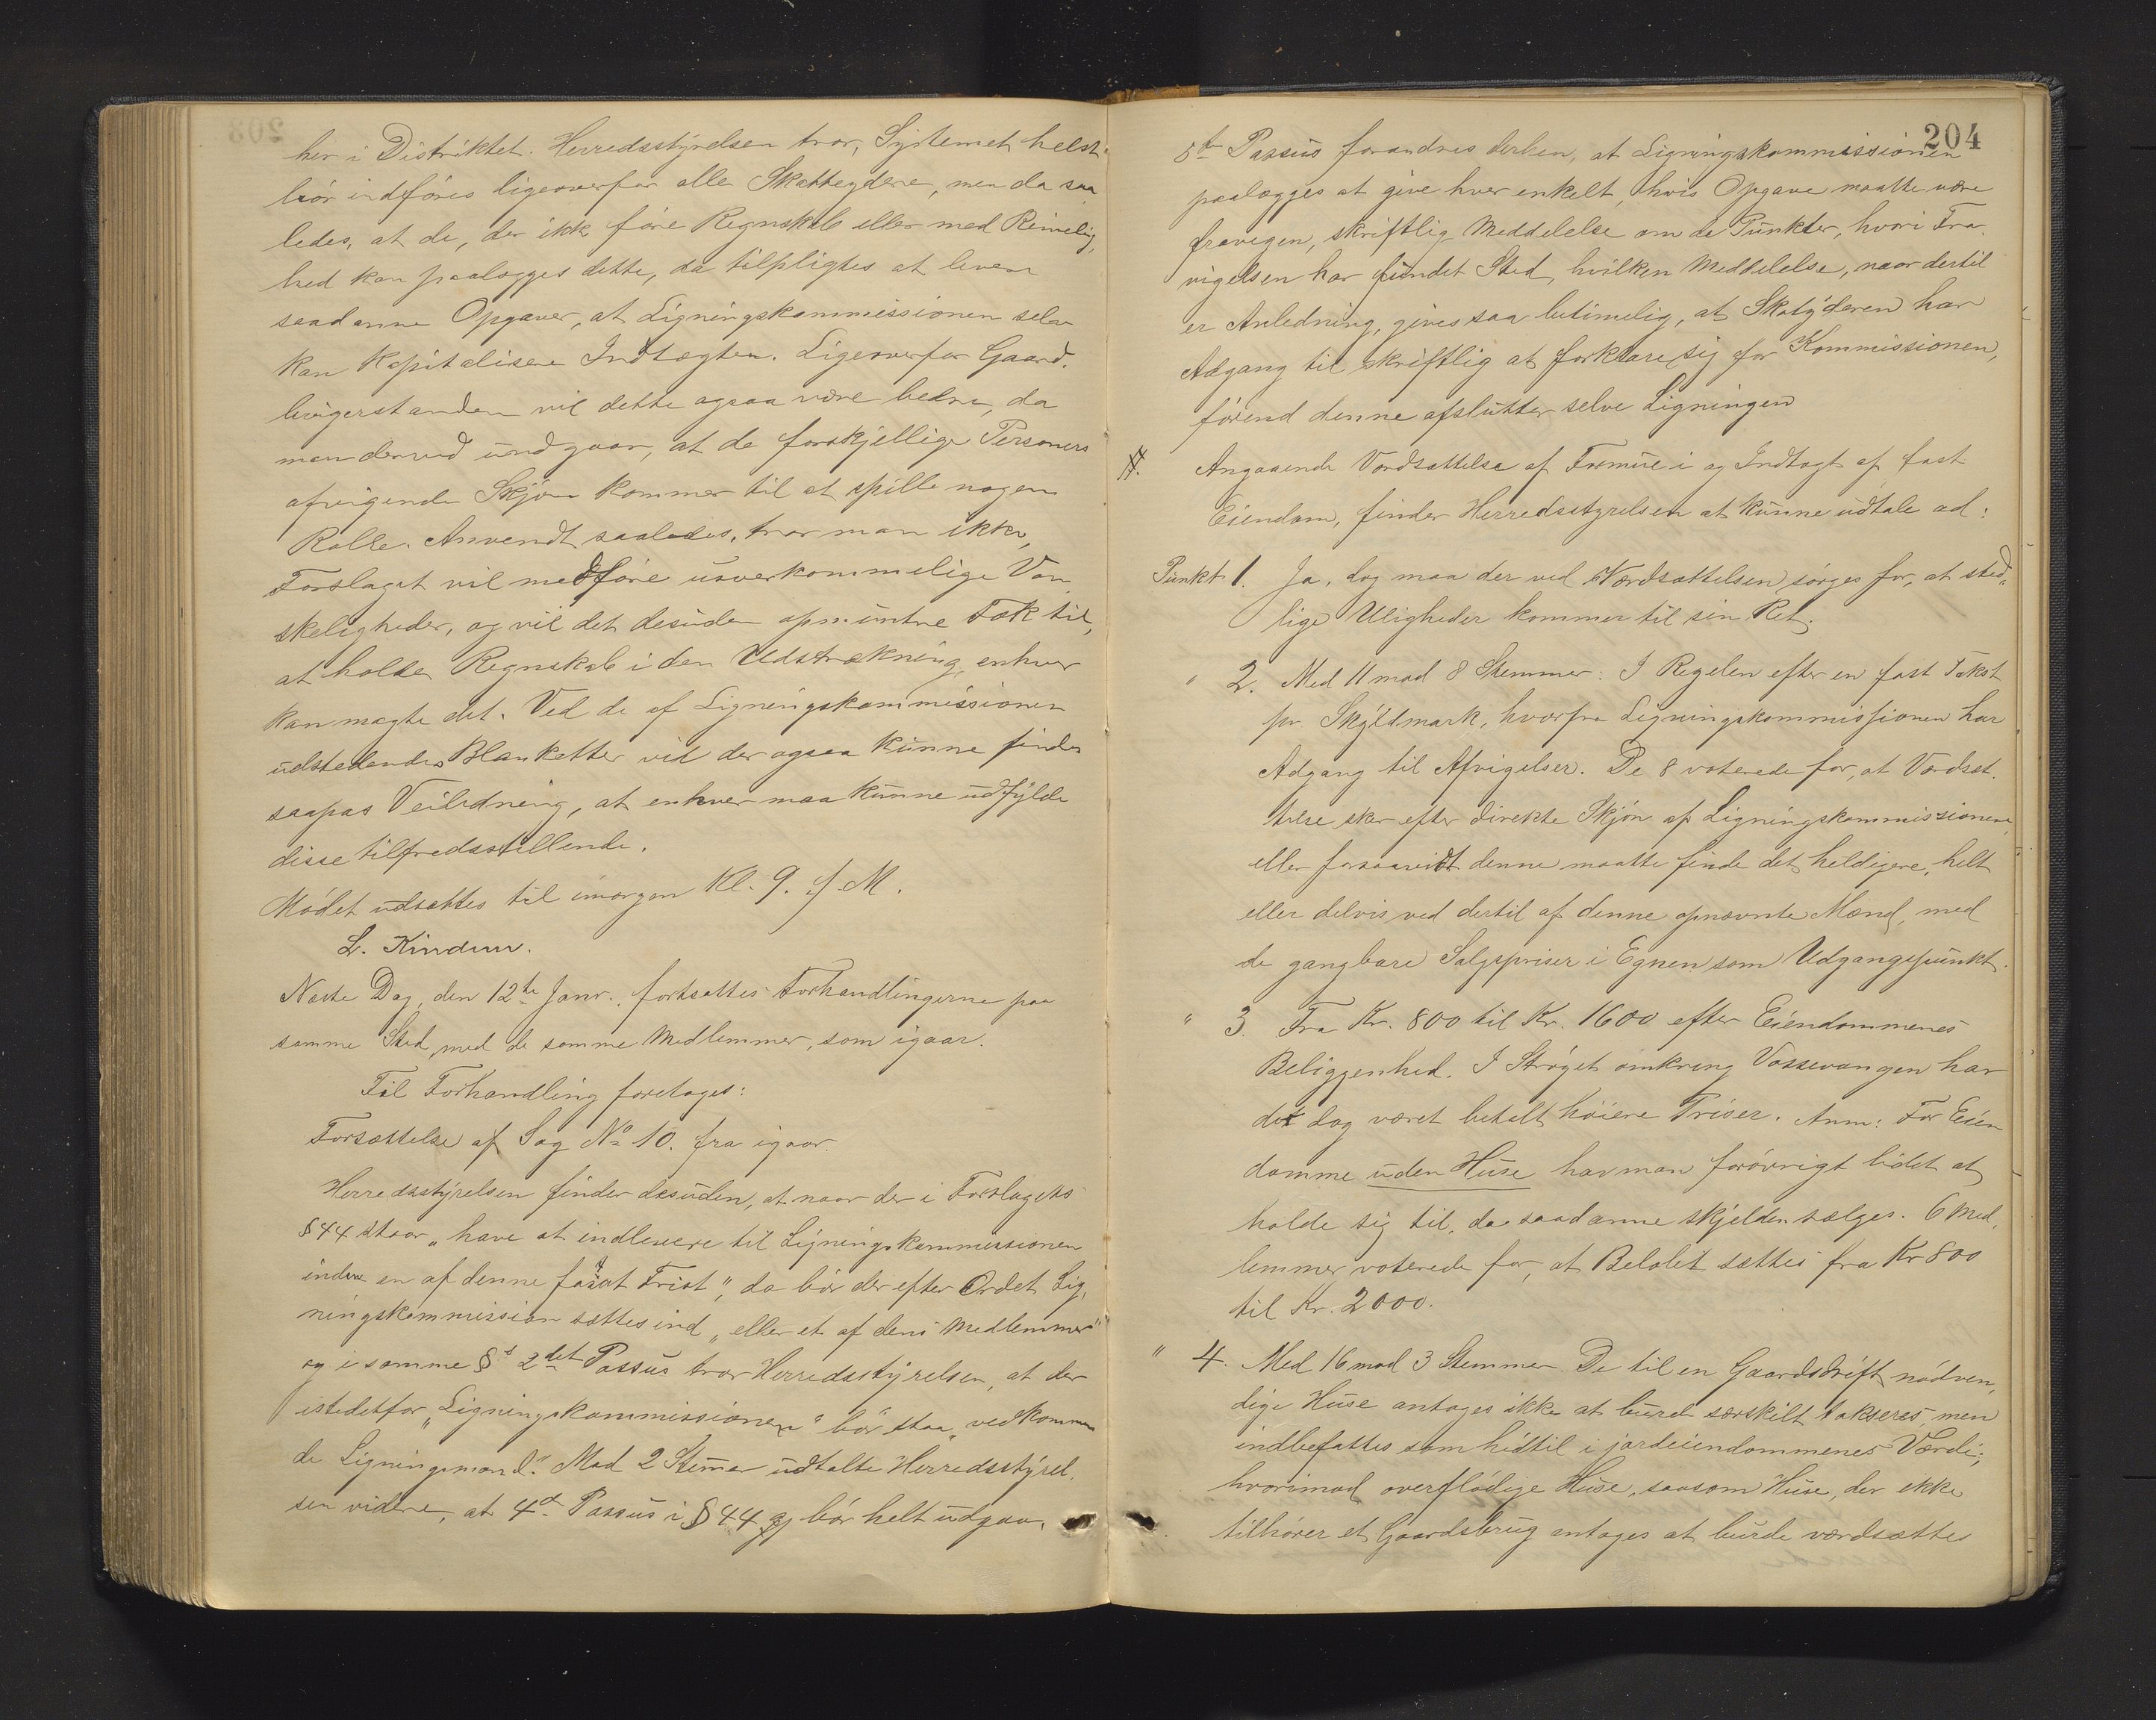 her i Distriktet. Herredsstyrelsen tror, Systemet helst
bör indföres ligeoverfor alle Skatteydere, men da saa
ledes, at de, der ikke före Regnskab eller med Rimelig,
hed kan paalægges dette, da tilpligtes at levere
saadanne Opgaver, at Ligningskommissionen selv
kan kapitalisere Indtægten. Ligeoverfor Gaard,
brugerstanden vil dette ogsaa være bedre, da
man derved undgaar, at de forskjellige Personers
afvigende Skjön kommer til at spille nogen
Rolle. Anvendt saaledes, tror man ikke,
Forslaget vil medföre uoverkommelige Van
skeligheder, og vil det desuden opmuntre Folk til,
at holde Regnskab i den Udstrækning, enhver
kan magte det. Ved de af Ligningskommissionen
udstedendes Blanketter vil der ogsaa kunne findes
saapas Veiledning, at enhver maa kunne udfylde
disse tilfredsstillende.
Mödet udsættes til imorgen Kl. 9. f M.
L. Kindem.
Næste Dag, den 12te Janr. fortsattes Forhandlingerne paa
samme Sted, med de samme Medlemmer, som igaar.
Til Forhandling foretages:
Forsættelse af Sag No 10. fra igaar.
Herredsstyrelsen finder desuden, at naar der i Forslagets
§ 44 staar „have at indlevere til Ligningskommissionen
inden en af denne fasat Frist", da bör der efter Ordet Lig,
ningskommission sættes ind „eller et af dens Medlemmer"
og i samme §s 2det Passus tror Herredsstyrelsen, at der
istedetfor „Ligningskommissionen" bör staa „vedkommen
de Ligningsmand." Mod 2 Stemer udtalte Herredsstyrel,
sen videre, at 4de Passus i § 44 bör helt udgaa,
204
5te Passus forandres derhen, at Ligningskommissionen
paalægges at give hver enkelt, hvis Opgave maatte være
fravegen, skriftlig Meddelelse om de Punkter, hvori Fra,
vigelsen har fundet Sted, hvilken Meddelelse, naar dertil
er Anledning, gives saa betimelig, at Skatyderen har
Adgang til skriftlig at forklare sig for Kommissionen,
förend denne afslutter selve Ligningen
Angaaende Værdsættelse af Formue i og Indtægt af fast
Eiendom, finder Herredsstyrelsen at kunne udtale ad:
Punkt 1. Ja, dog maa der ved Værdsættelsen sörges for, at sted,
lige Uligheder kommer til sin Ret.
" 2. Med 11 mod 8 Stemmer: I Regelen efter en fast Takst
pr Skyldmark, hvorfra Ligningskommissionen har
Adgang til Afvigelser. De 8 voterede for, at Værdsæt,
telse sker efter direkte Skjön af Ligningskommissionen,
eller forsaavidt denne maatte finde det heldigere, helt
eller delvis ved dertil af denne opnævnte Mænd, med
de gangbare Salgspriser i Egnen som Udgangspunkt.
" 3. Fra Kr. 800 til Kr. 1600 efter Eiendommenes
Beliggenhed. I Ströget omkring Vossevangen har
det dog været betalt höiere Priser. Anm: For Eien
domme uden Huse har man forövrigt lidet at
holde sig til, da saadanne skjelden sælges. 6 Med,
lemmer voterede for, at Belöbet sættes fra Kr 800
til Kr. 2000.
" 4. Med 16 mod 3 Stemmer De til en Gaardsdrift nödven,
dige Huse antages ikke at burde særskilt takseres, men
indbefattes som hidtil i jordeiendommenes Værdi;
hvorimod overflödige Huse, saasom Huse, der ikke
tilhörer et Gaardsbrug antages at burde værdsættes